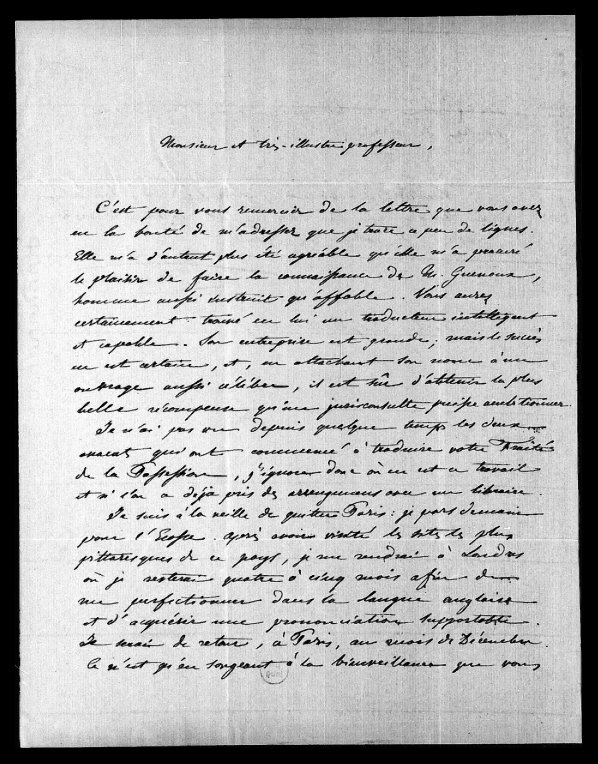 Monsieur et très-illustre professeur,
C'est pour vous remercier de la lettre que vous avez
eu la bonté de m'adresser que je trace ce peu de lignes.
Elle m'a d'autant plus été agréable qu'elle m'a procuré
le plaisir de faire la connaissance de M. Guenoux,
homme aussi instruit qu'affable. Vous aurez
certainement trouvé en lui un traducteur intelligent
et capable. Son entreprise est grande, mais le succès
en est certain, et, en attachant son nom à un
ouvrage aussi célèbre, il est sûr d'obtenir la plus
belle récompense qu'un jurisconsulte puisse ambitionner.
Je n'ai pas vu depuis quelque temps les deux
avocats qui ont commencé à traduire votre Traité
de la Possession, j'ignore donc où en est ce travail
et s'ils ont déjà pris des arrangemens avec un libraire.
Je suis à la veille de quitter Paris : je pars demain
pour l'Ecosse. Après avoir visité les sites les plus
pittoresques de ce pays, je me rendrai à Londres
où je resterai quatre à cinq mois afin de
me perfectionner dans la langue anglaise
et d'acquérir une prononciation supportable.
Je serai de retour, à Paris, au mois de Décembre.
Ce n'est qu'en songeant à la bienveillance que vous